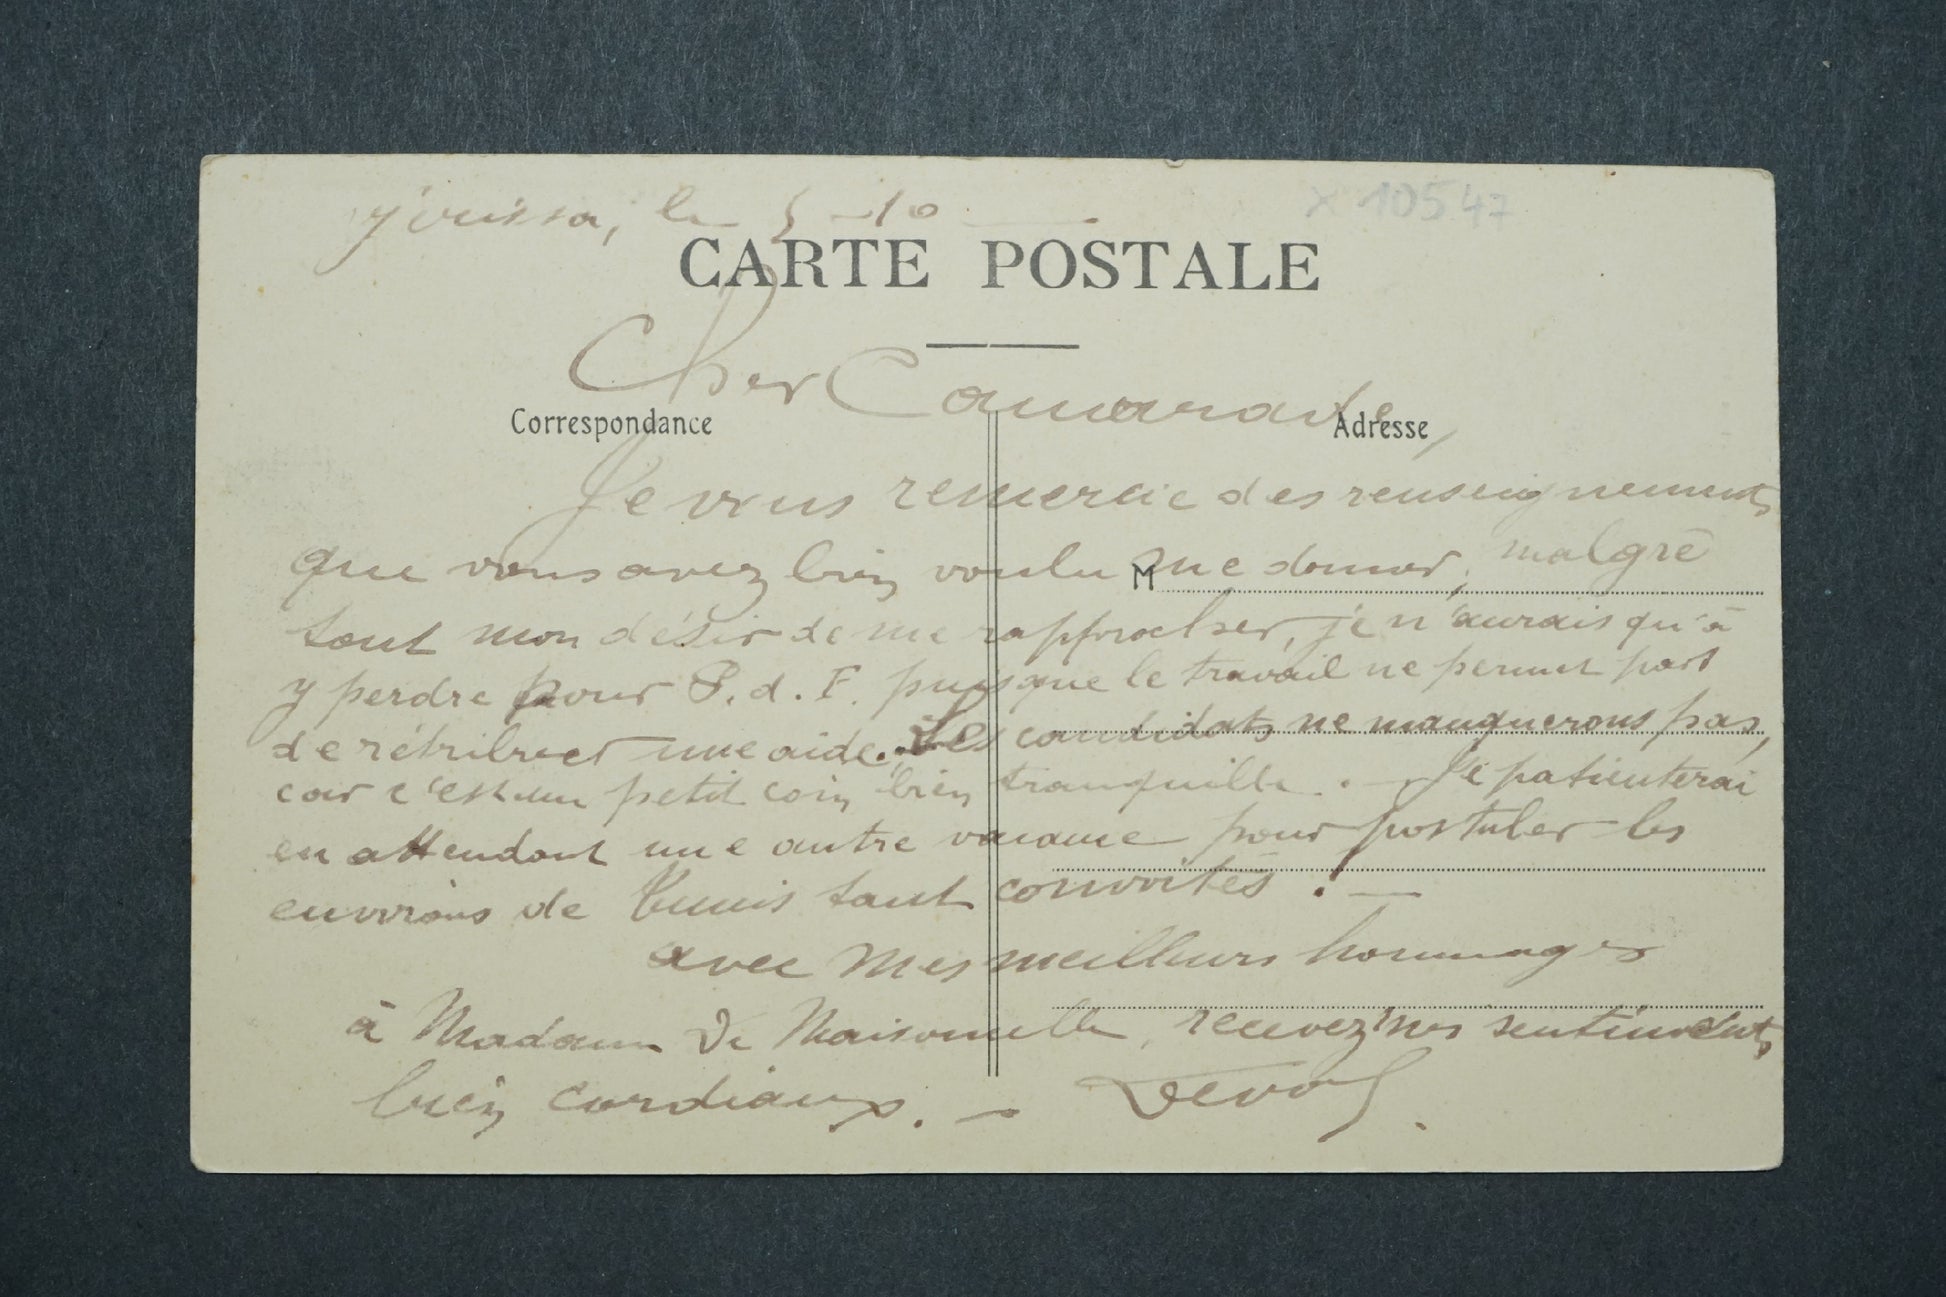 Jouissa, le 5-10
x 10547
CARTE POSTALE
Cher Camarade,
Correspondance
Adresse
Je vous remercie des renseignements
que vous avez bien voulu me donner, malgré
M
tout mon désir de me rapprocher, je n'aurais qu'à
y perdre pour P. d. F. puisque le travail ne permet pas
de rétribuer une aide. Les candidats ne manquerons pas,
car c'est un petit coin bien tranquille. - Je patienterai
en attendant une autre vacance pour postuler les
environs de Tunis tant convoités ! -
avec mes meilleurs hommages
à Madame De Maisonnelle, recevez mes sentiments
bien cordiaux. -